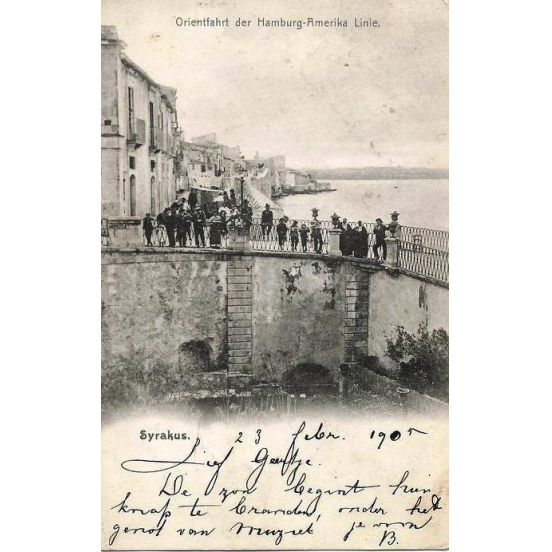 Orientfahrt der Hamburg-Amerika Linie.
Syrakus.
23 Febr. 1905
Lief Geertje.
De zon begint hier
knap te branden, onder het
genot van muziek je vom
B.